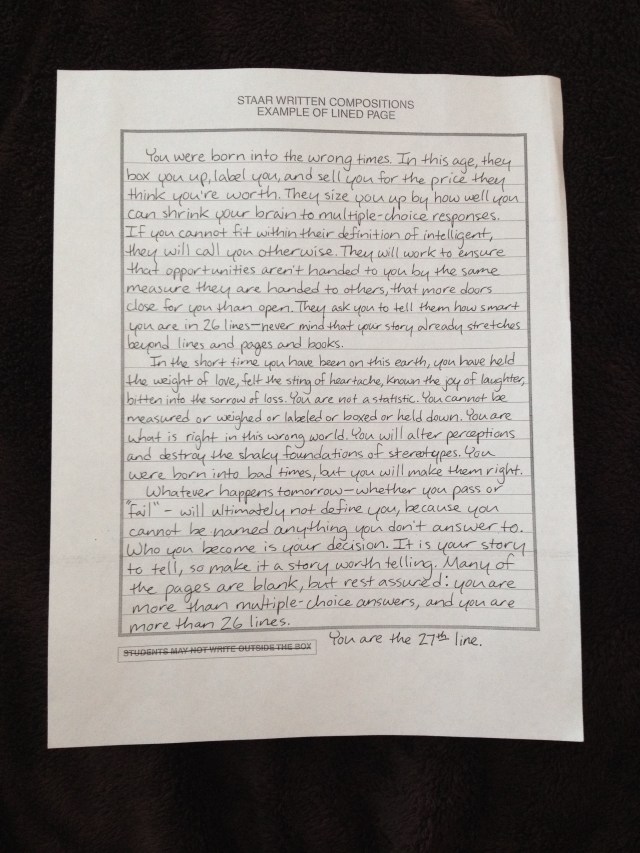 STAAR WRITTEN COMPOSITIONS
EXAMPLE OF LINED PAGE
You were born into the wrong times. In this age, they
box you up, label you, and sell you for the price they
think you're worth. They size you up by how well you
can shrink your brain to multiple-choice responses.
If you cannot fit within their definition of intelligent,
they will call you otherwise. They will work to ensure
that opportunities aren't handed to you by the same
measure they are handed to others, that more doors
close for you than open. They ask you to tell them how smart
you are in 26 lines—never mind that your story already stretches
beyond lines and pages and books.
In the short time you have been on this earth, you have held
the weight of love, felt the sting of heartache, known the joy of laughter,
bitten into the sorrow of loss. You are not a statistic. You cannot be
measured or weighed or labeled or boxed or held down. You are
what is right in this wrong world. You will alter perceptions
and destroy the shaky foundations of stereotypes. You
were born into bad times, but you will make them right.
Whatever happens tomorrow—whether you pass or
"fail" - will ultimately not define you, because you
cannot be named anything you don't answer to.
Who you become is your decision. It is your story
to tell, so make it a story worth telling. Many of
the pages are blank, but rest assured: you are
more than multiple-choice answers, and you are
more than 26 lines.
STUDENTS MAY NOT WRITE OUTSIDE THE BOX
You are the 27th line.